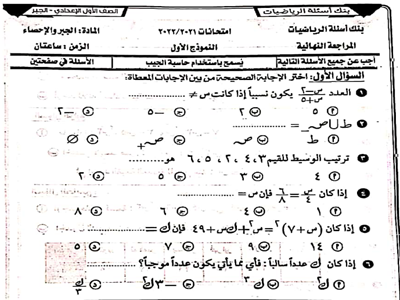 بنك أسئلة الرياضيات الصف الأول الإعدادي - الجبر
بنك أسئلة الرياضيات امتحانات ٢٠٢٢/٢٠٢١ المادة: الجبر والإحصاء
المراجعة النهائية النموذج الأول الزمن: ساعتان
أجب عن جميع الأسئلة التالية يُسمح باستخدام حاسبة الجيب الأسئلة في صفحتين
السؤال الأول: اختر الإجابة الصحيحة من بين الإجابات المعطاة:
١ العدد (س-٢)/(س+٥) يكون نسبياً إذا كانت س ≠ ............
أ ٥ ب ٢ ج -٥ د -٢
٢ ط ∪ صـ_ = ............
أ ط ب صـ ج صـ+ د ∅
٣ ترتيب الوسيط للقيم ٣، ٤، ٢، ٦، ٥ هو ............
أ ٤ ب ٣ ج ٥ د ٢
٤ إذا كان ٤/س = ٦/٨ فإن س = ............
أ ١ ب ٤ ج ٦ د ٨
٥ إذا كان (س+٧)٢ = س٢ + ك س + ٤٩ فإن ك = ............
أ ١٤ ب ٩ ج ٧ د ٥
٦ إذا كان ك عدداً سالباً: فأي مما يأتي يكون عدداً موجباً؟
أ ك٢ ب ك٣ ج -٣ك٢ د ك/٣